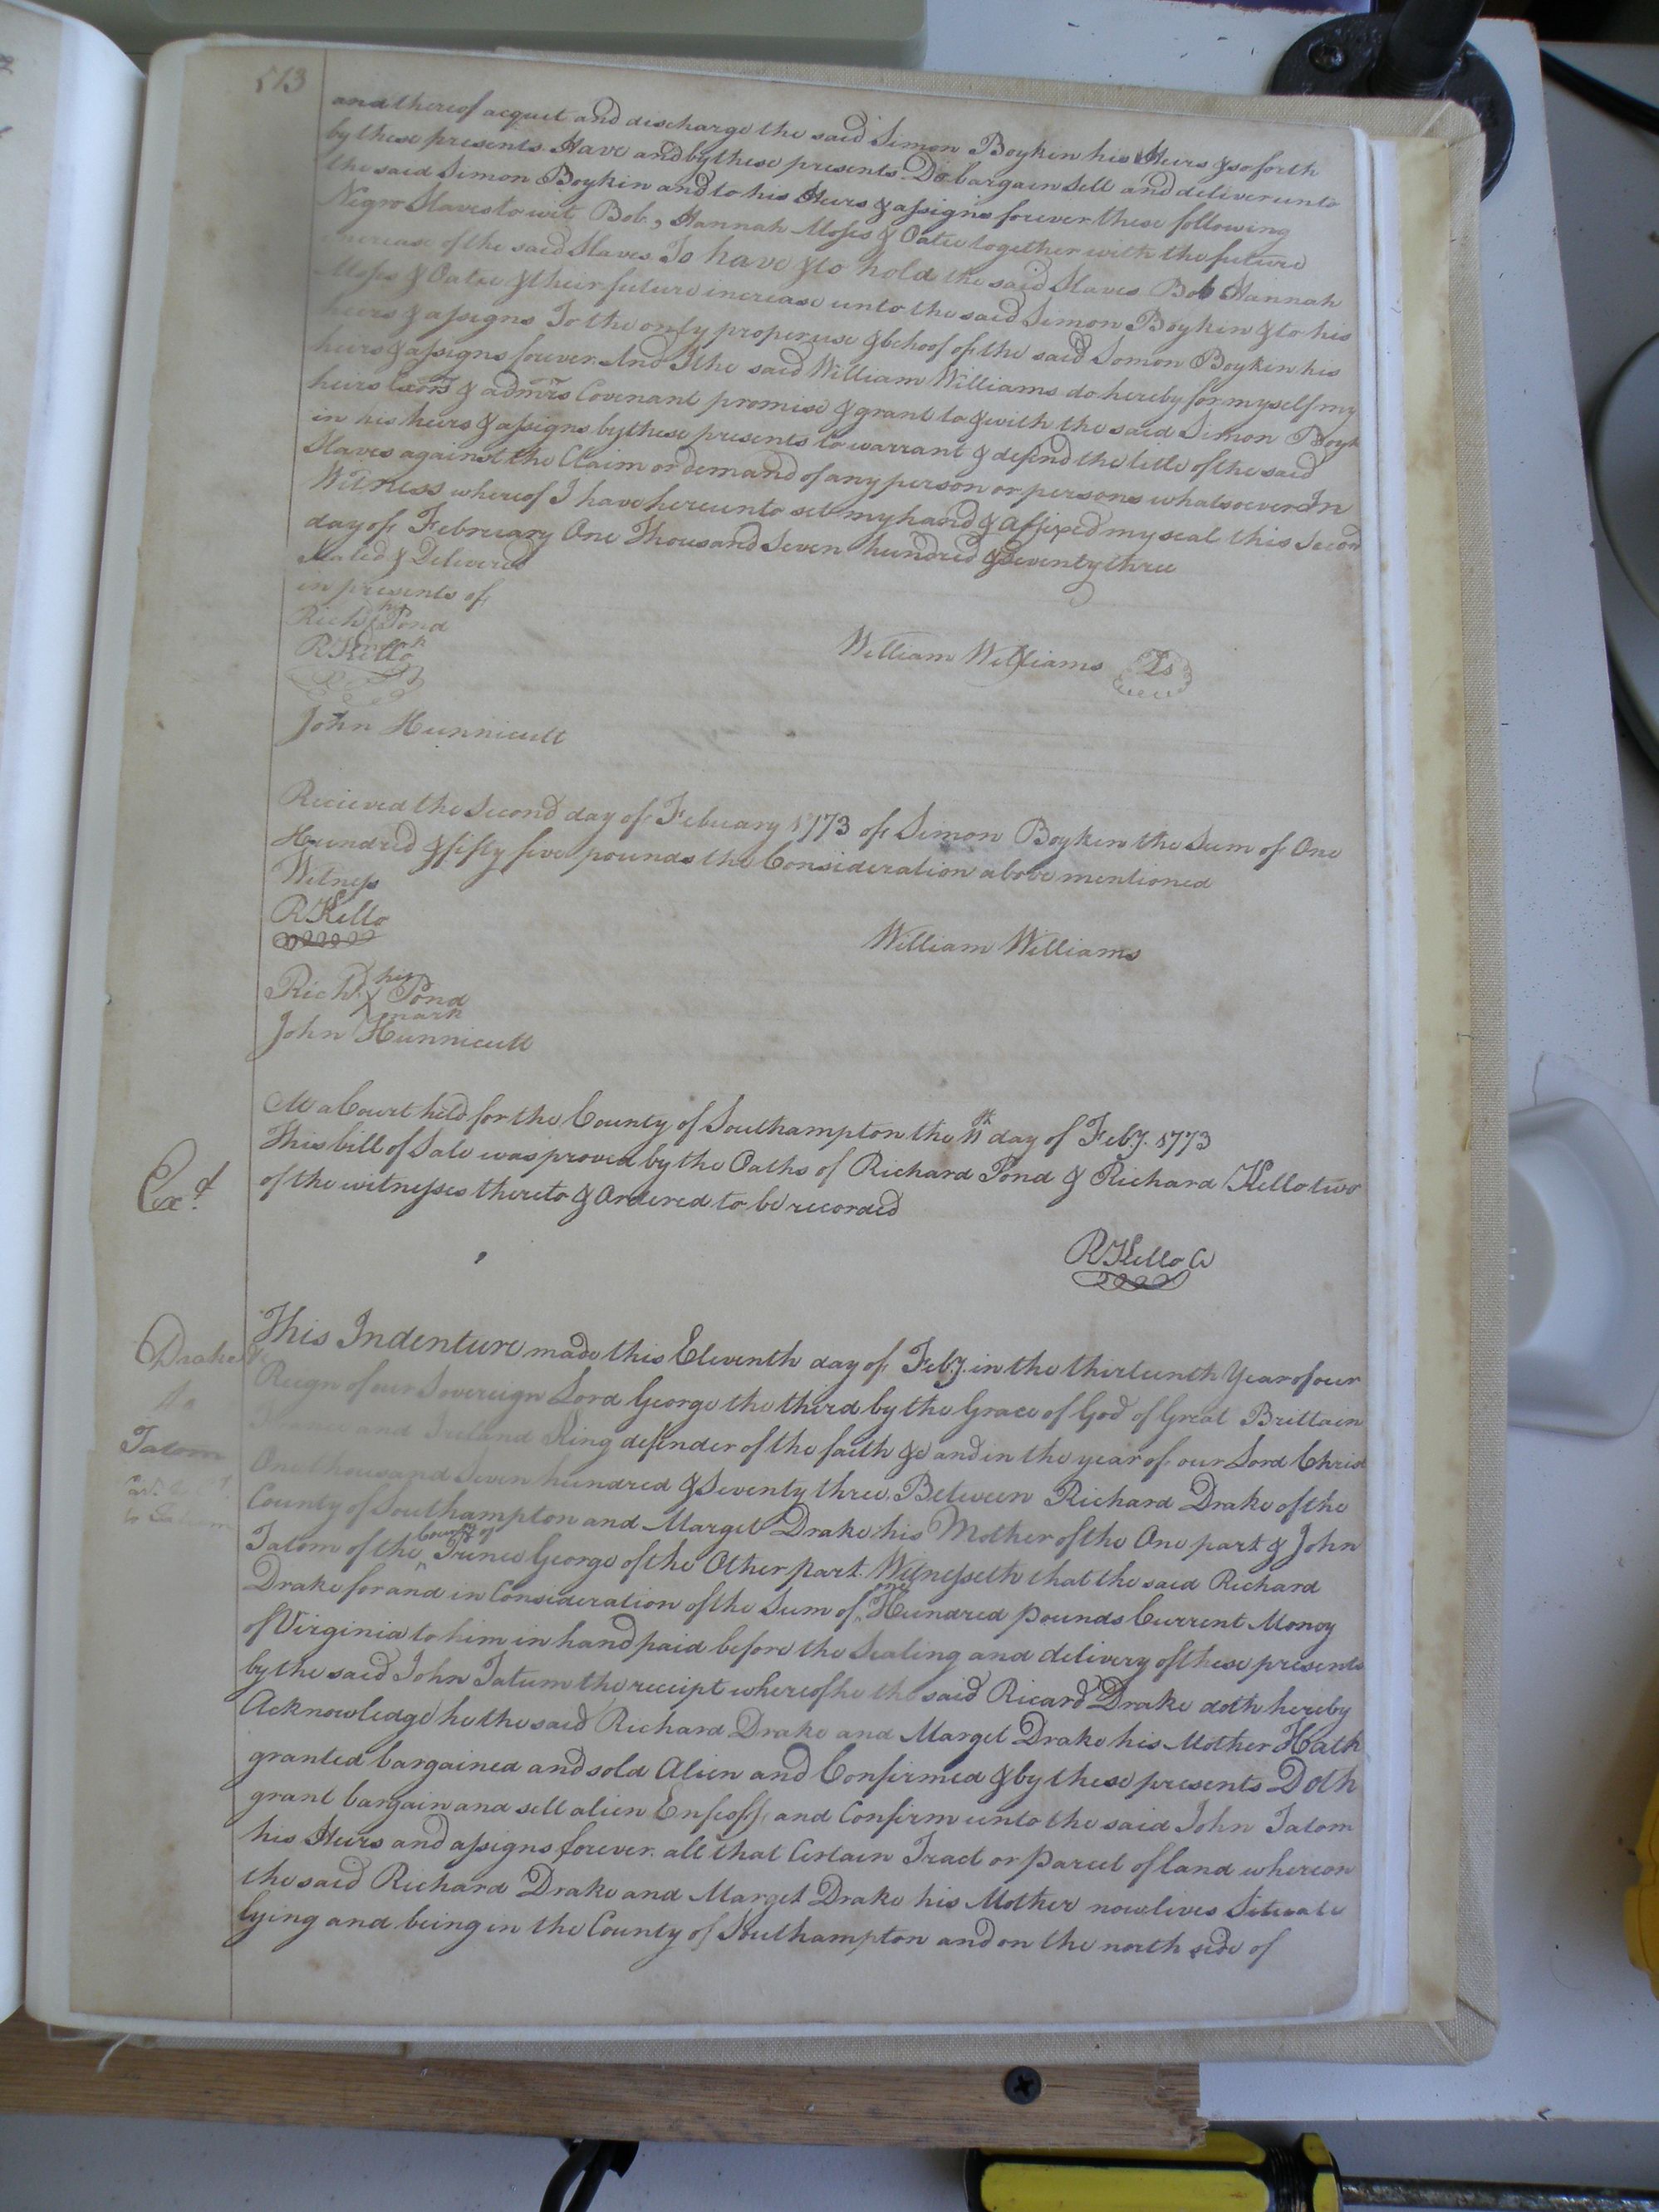 513
and thereof acquit and discharge the said Simon Boykin his Heirs & so forth
by these presents Have and by these presents Do bargain Sell and deliver unto
the said Simon Boykin and to his Heirs & assigns forever these following
Negro Slaves to wit, Bob, Hannah Moses & Oatie together with the future
increase of the said Slaves To have & to hold the said Slaves Bob Hannah
Moses & Oatie & their future increase unto the said Simon Boykin & to his
heirs & assigns To the only proper use & behoof of the said Somon Boykin his
heirs & assigns forever And I the said William Williams do hereby for myself my
heirs Exors & admrs Covenant promise & grant to & with the said Simon Boyk
in his heirs & assigns by these presents to warrant & defend the title of the said
Slaves against the Claim or demand of any person or persons whatsoever In
Witness whereof I have hereunto set my hand & affixed my seal this Second
day of February One Thousand Seven hundred & Seventy three
Sealed & Delivered
in presents of
Richd his Pond
mark
R Kello
William Williams Ls
John Hunnicutt
Recieved the Second day of Febuary 1773 of Simon Boykin the Sum of One
Hundred & fifty five pounds the Consideration above mentioned
Witness
R Kello
William Williams
Richd his X Pond
mark
John Hunnicutt
At a Court held for the County of Southampton the 11th day of Feby. 1773
This bill of Sale was proved by the Oaths of Richard Pond & Richard Kello two
of the witnesses thereto & Ordered to be recorded
Exd.
R Kello C
Drake
to
Tatom
This Indenture made this Eleventh day of Feby. in the thirteenth Year of our
Reign of our Sovereign Lord George the third by the Grace of God of Great Brittain
France and Ireland King defender of the faith &c and in the year of our Lord Christ
One thousand Seven hundred & Seventy three. Between Richard Drake of the
County of Southampton and Marget Drake his Mother of the One part & John
Tatom of the County of Prince George of the Other part. Witnesseth that the said Richard
Drake for and in Consideration of the Sum of one Hundred pounds Current Money
of Virginia to him in hand paid before the Sealing and delivery of these presents
by the said John Tatum the receipt whereof he the said Ricard Drake doth hereby
Acknowledge he the said Richard Drake and Marget Drake his Mother Hath
granted bargained and sold Alien and Confirmed & by these presents Doth
grant bargain and sell alien Enfeoff and Confirm unto the said John Tatom
his Heirs and assigns forever. all that Certain Tract or parcel of land whereon
the said Richard Drake and Marget Drake his Mother now lives Situate
lying and being in the County of Southampton and on the north side of